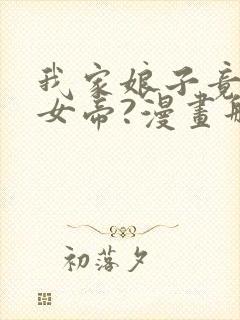 我家娘子竟
女帝?漫畫版
初落夕